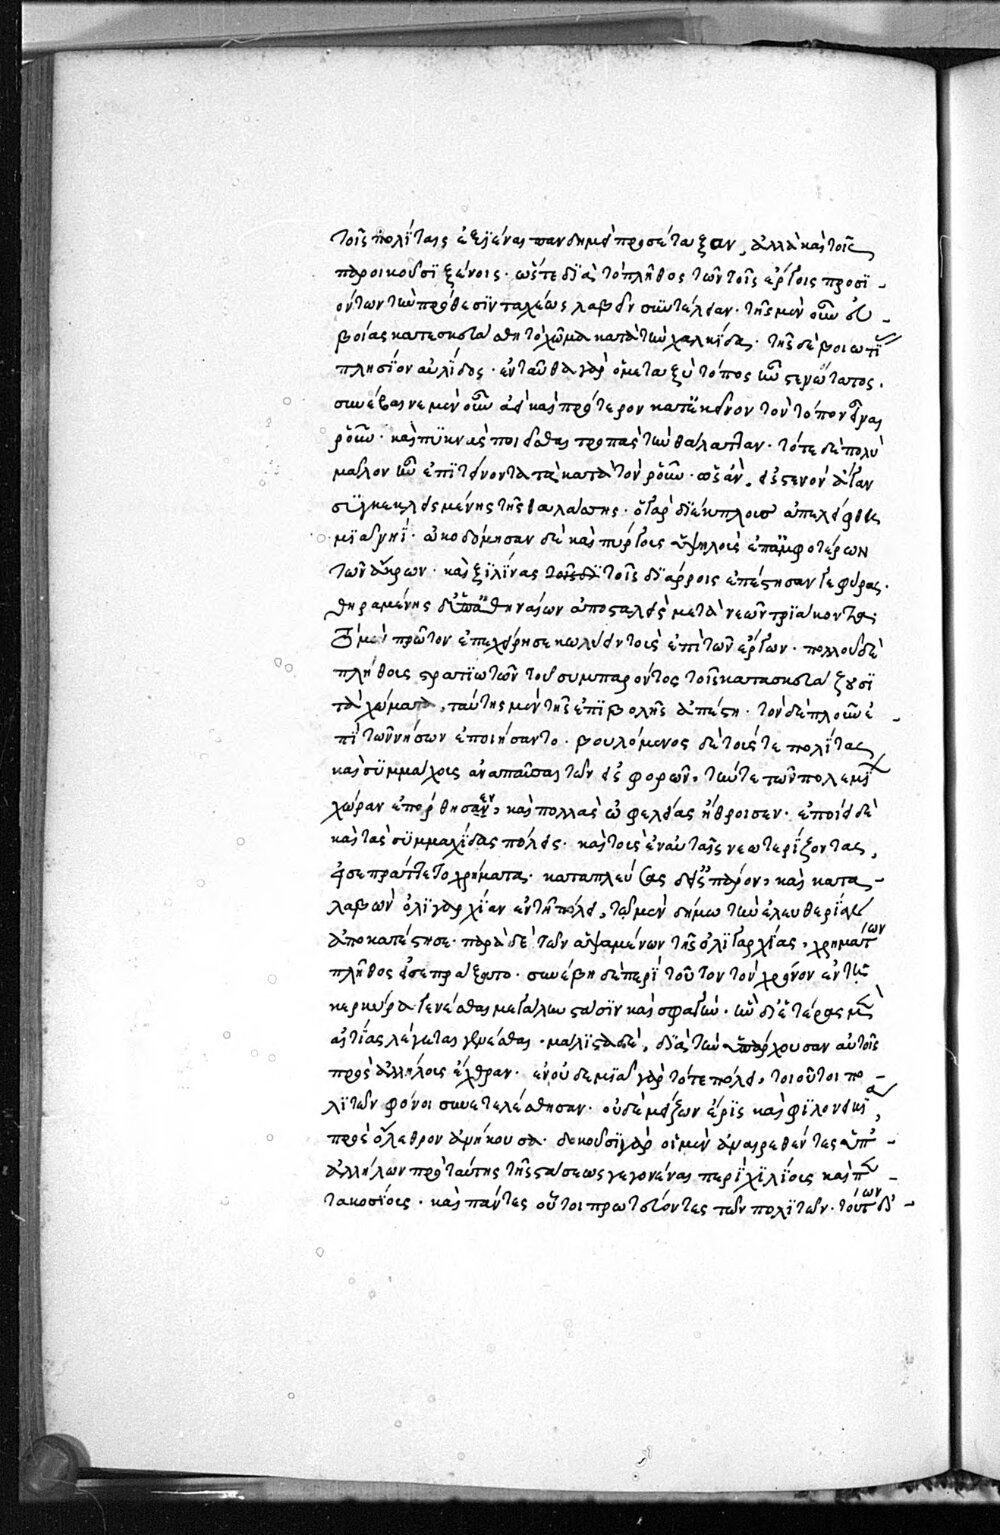 τοῖς πολίταις ἐξιέναι πανδημεὶ προσέταξαν, ἀλλὰ καὶ τοῖς
παροικοῦσι ξένοις· ὥστε διὰ τὸ πλῆθος τῶν τοῖς ἔργοις προσι-
όντων τὴν πρόθεσιν ταχέως λαβεῖν συντέλειαν· τῆς μὲν οὖν εὐ-
βοίας κατεσκευάσθη τὸ χῶμα κατὰ τὴν χαλκίδα· τῆς δὲ βοιωτί
πλησίον αὐλίδος· ἐνταῦθα γὰρ ὁ μεταξὺ τόπος ἦν στενώτατος.
συνέβαινε μὲν οὖν ἀεὶ καὶ πρότερον κατ' ἐκεῖνον τὸν τόπον εἶναι
ῥοῦν· καὶ πυκνὰς ποιεῖσθαι τροπὰς τὴν θάλατταν· τότε δὲ πολὺ
μᾶλλον ἦν ἐπιτείνοντα τὰ κατὰ τὸν ῥοῦν· ὡς ἂν, εἰς στενὸν ἄγαν
συγκεκλεισμένης τῆς θαλάσσης· ὁ γὰρ διέκπλους ἀπελείφθη
μιᾷ νηί· ᾠκοδόμησαν δὲ καὶ πύργους ὑψηλοὺς ἐπ' ἀμφοτέρων
τῶν ἄκρων· καὶ ξυλίνας τοῖς διάρροις ἐπέστησαν γεφύρας.
θηραμένης δὲ ὑπὸ ἀθηναίων ἀποσταλεὶς μετὰ νεῶν τριάκοντα·
τὸ μὲν πρῶτον ἐπεχείρησε κωλύειν τοὺς ἐπὶ τῶν ἔργων· πολλοῦ δὲ
πλήθους στρατιωτῶν τοῦ συμπαρόντος τοῖς κατασκευάζουσι
τὰ χώματα, ταύτης μὲν τῆς ἐπιβολῆς ἀπέστη· τὸν δὲ πλοῦν ἐ-
πὶ τῶν νήσων ἐποιήσαντο· βουλόμενος δὲ τούς τε πολίτας
καὶ συμμάχους ἀναπαῦσαι τῶν εἰσφορῶν, τήν τε τῶν πολεμί
χώραν ἐπόρθησαεν, καὶ πολλὰς ὠφελείας ἤθροισεν· ἐπῄει δὲ
καὶ τὰς συμμαχίδας πόλεις· καὶ τοὺς ἐν αὐταῖς νεωτερίζοντας,
εἰσεπράττετο χρήματα· καταπλεύσας δ' εἰς πάρον, καὶ κατα-
λαβὼν ὀλιγαρχίαν ἐν τῇ πόλει, τῷ μὲν δήμῳ τὴν ἐλευθερίαν
ἀποκατέστησε· παρὰ δὲ τῶν ἁψαμένων τῆς ὀλιγαρχίας, χρημάτων
πλῆθος εἰσεπράξατο· συνέβη δὲ περὶ τοῦτον τὸν χρόνον ἐν τῇ
κερκύρᾳ γενέσθαι μεγάλην στάσιν καὶ σφαγήν· ἣν δι' ἑτέρας μὲν
αἰτίας λέγεται γενέσθαι· μάλιστα δὲ, διὰ τὴν ὑπάρχουσαν αὐτοῖς
πρὸς ἀλλήλους ἔχθραν· ἐν οὐδεμιᾷ γὰρ τότε πόλει, τοιοῦτοι πο-
λιτῶν φόνοι συνετελέσθησαν· οὐδὲ μείζων ἔρις καὶ φιλονεικία,
πρὸς ὄλεθρον ἀνήκουσα· δοκοῦσι γὰρ οἱ μὲν ἀναιρεθέντες ὑπ'-
ἀλλήλων πρὸ ταύτης τῆς στάσεως γεγονέναι περὶ χιλίους καὶ πεν-
τακοσίους· καὶ πάντες οὗτοι πρωτεύοντες τῶν πολιτῶν· τούτων δ'-